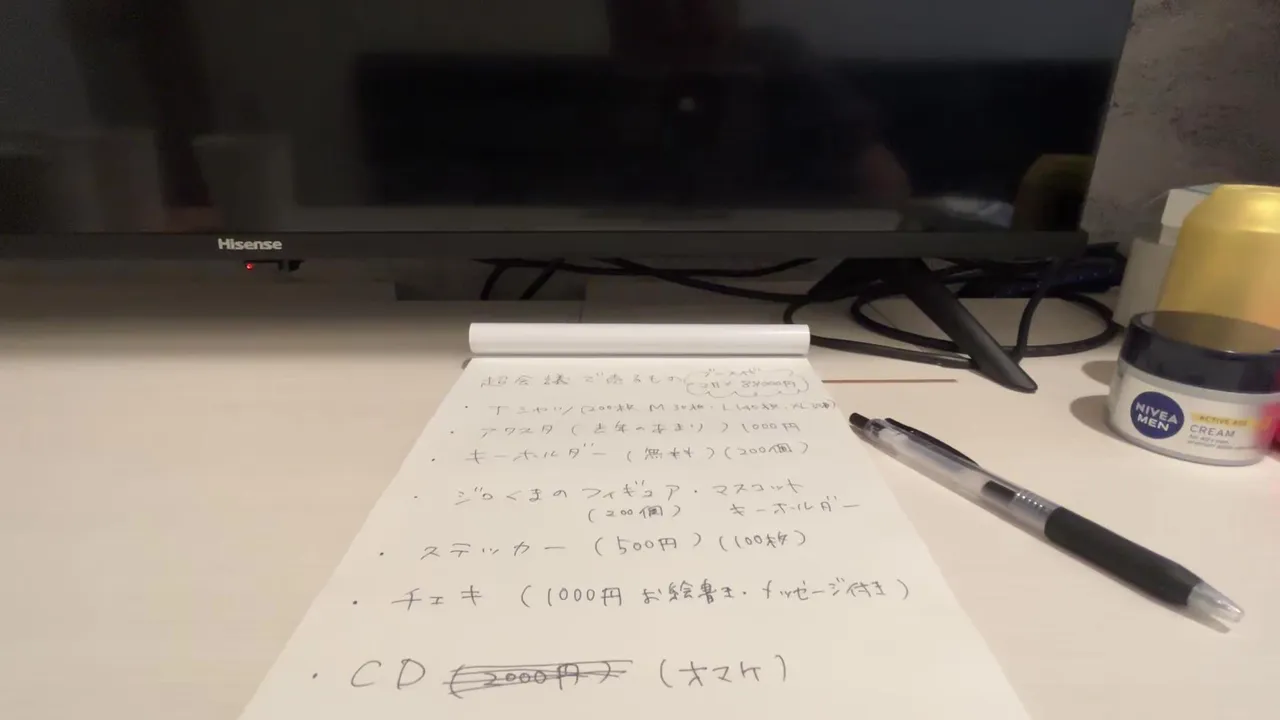 Hisense
超会議で売るもの ブース代 コリブ 88000円
・Tシャツ (200枚 M 30枚・L 140枚・XL 30枚)
・アクスタ (去年のあまり) 1000円
・キーホルダー (無料) (200個)
・ジロくまのフィギュア・マスコット
(200個) キーホルダー
・ステッカー (500円) (100枚)
・チェキ (1000円 お絵書き・メッセージ付き)
・CD (2000円) (オマケ)
NIVEA
MEN
ACTIVE AGE
CREAM